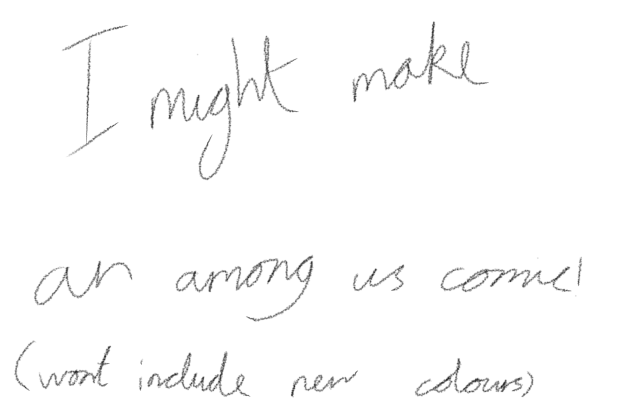 I might make
an among us comic!
(wont include new colours)